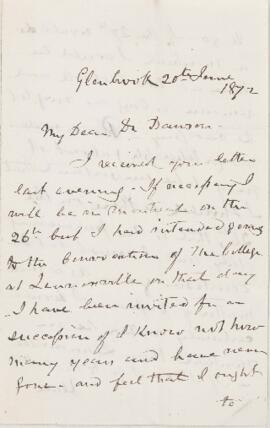 Glenbrook 20th June
1872
My Dear Dr Dawson
I received your letter
last evening - If necessary I
will be in Montreal on the
26th but I had intended going
to the Convocation of the College
at Lennoxville on that day
I have been invited for an
succession of I know not how
many years and have never
gone - and feel that I ought
to